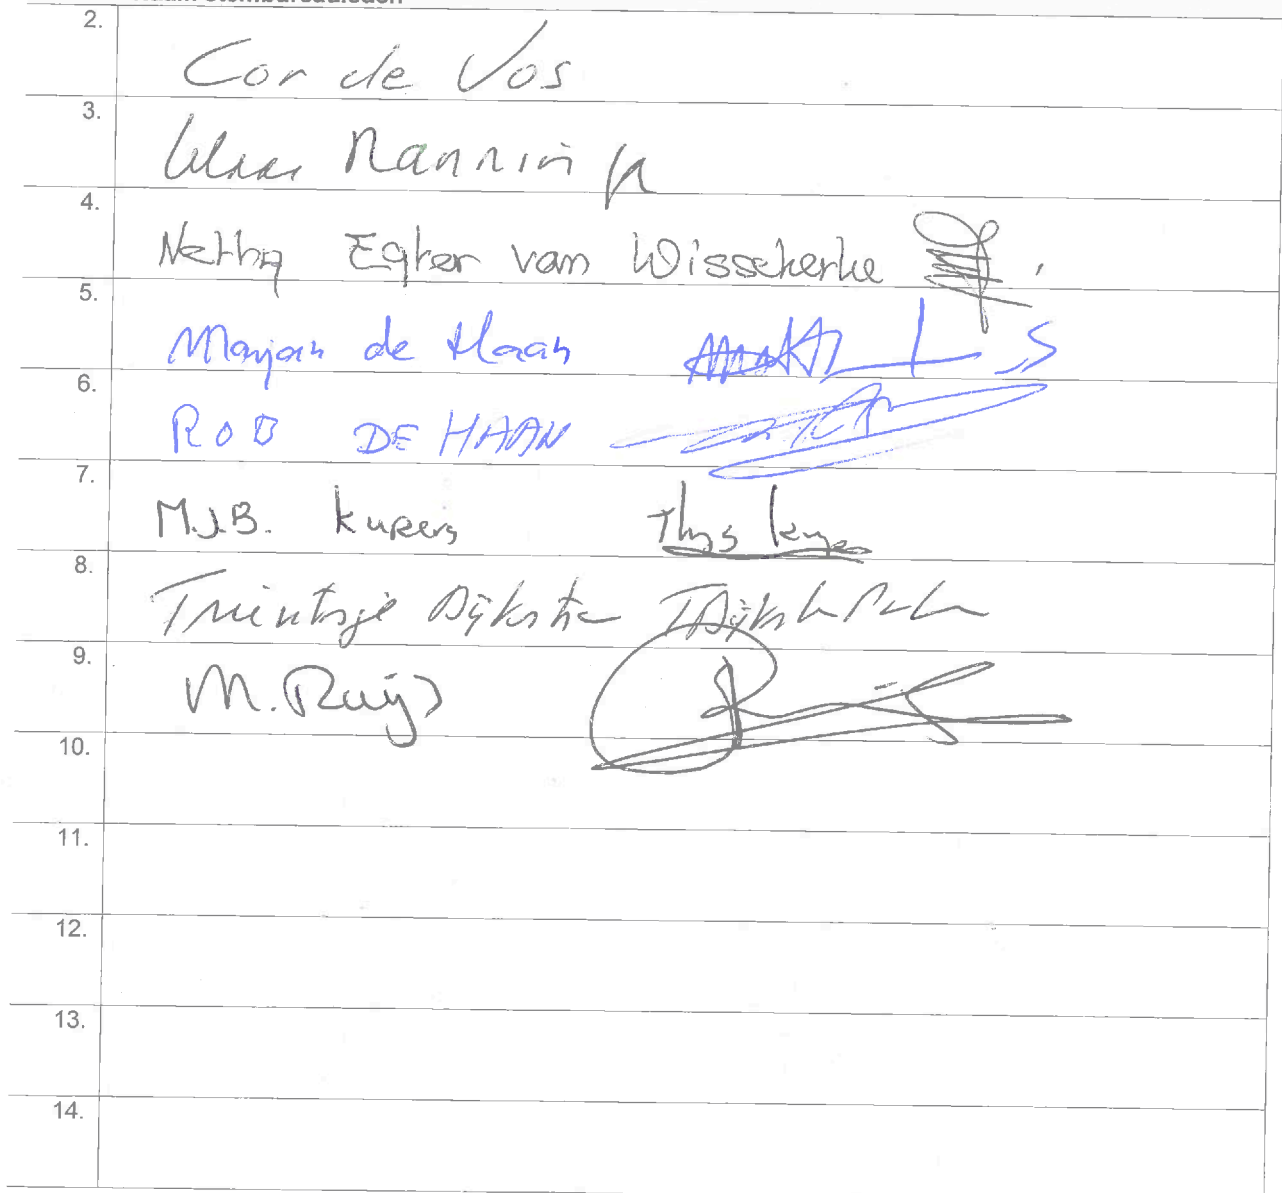 2. Cor de Vos
3. Klaas Nanninga
4. Netty Egter van Wissekerke
5. Marjan de Haan
6. ROB DE HAAN
7. M.J.B. Kupers Thijs
8. Trientsje Dijkstra
9. M. Ruijs
10.
11.
12.
13.
14.